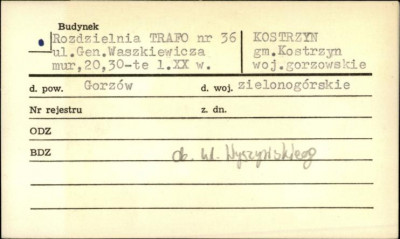 Budynek
Rozdzielnia TRAFO nr 36
ul.Gen.Waszkiewicza
mur,20,30-te l.XX w.
KOSTRZYN
gm.Kostrzyn
woj.gorzowskie
d. pow. Gorzów d. woj. zielonogórskie
Nr rejestru z. dn.
ODZ
BDZ
ob. ul. Wyszyńskiego